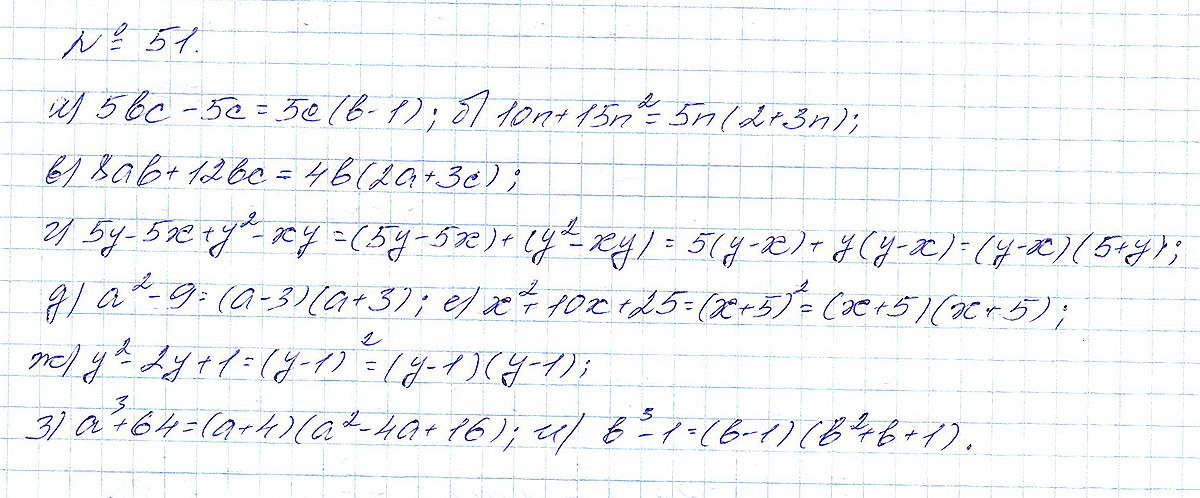 № 51.
а) 5bc - 5c = 5c (b - 1); б) 10n + 15n² = 5n (2 + 3n);
в) 8ab + 12bc = 4b (2a + 3c);
г) 5y - 5x + y² - xy = (5y - 5x) + (y² - xy) = 5(y - x) + y (y - x) = (y - x) (5 + y);
д) a² - 9 = (a - 3) (a + 3); е) x² + 10x + 25 = (x + 5)² = (x + 5) (x + 5);
ж) y² - 2y + 1 = (y - 1)² = (y - 1) (y - 1);
з) a³ + 64 = (a + 4) (a² - 4a + 16); и) b³ - 1 = (b - 1) (b² + b + 1).